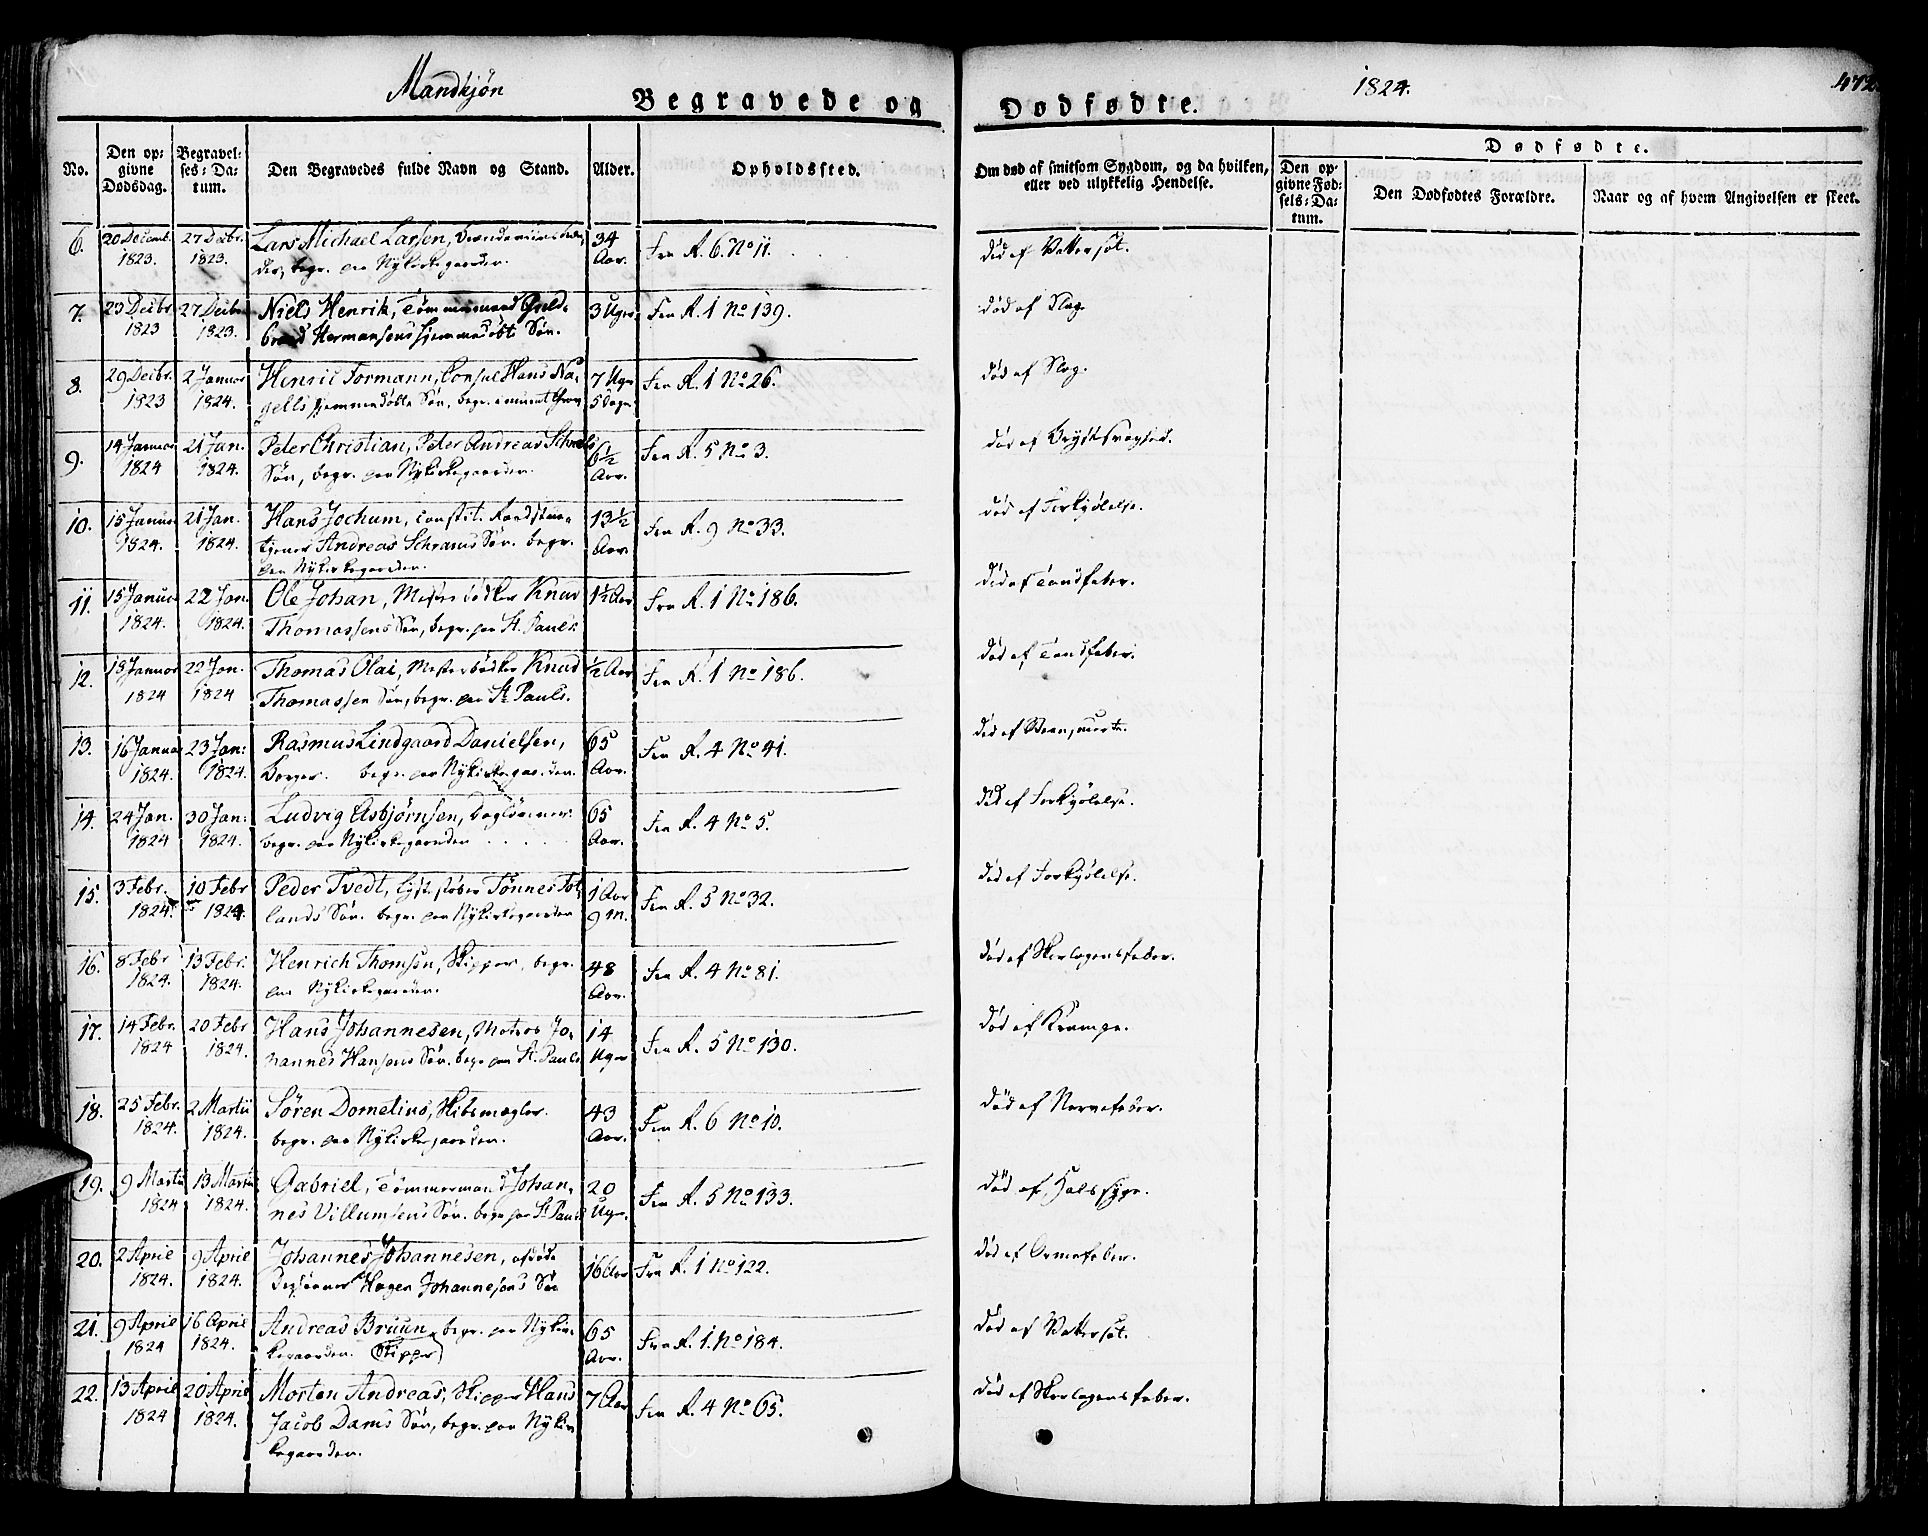 Mandkjøn
Begravede og
Dødfødte.
1824.
472
No.
Den opgivne Dødsdag.
Begravelses-Datum.
Den Begravedes fulde Navn og Stand.
Alder.
Opholdssted.
Om død af smitsom Sygdom, og da hvilken, eller ved ulykkelig Hendelse.
Dødfødte.
Den opgivne Fødsels-Datum.
Den Dødfødtes Forældre.
Naar og af hvem Angivelsen er skeet.
6. 20 Decemb. 1823. 27 Decbr. 1823. Lars Michael Larsen, begr. paa Nykirkegaarden. 34 Aar. Fra R. 6. No 11. død af Vattersot.
7. 23 Decbr 1823 27 Decbr 1823. Niels Henrik, Tømmermand Guldbrand Hermansens hjemmedøbt Søn. 3 Uger Fra R. 1 No 139. død af Slag.
8. 29 Decbr. 1823 2 Januar 1824. Henric Formann, Consul Hans Nagells hjemmedøbte Søn, begr. i muret Grav 7 Uger 5 Dage Fra R. 1 No 26. død af Slag.
9. 14 Januar 1824 21 Jan. 1824. Peter Christian, Peter Andreas Søn, begr. paa Nykirkegaarden. 6½ Aar. Fra R. 5 No 3. død af Brystsvaghed.
10. 15 Januar 1824. 21 Jan. 1824. Hans Jochum, constit. Andreas Schrams Søn. begr. paa Nykirkegaarden. 13½ Aar. Fra R. 9 No 33. død af Forkjølelse.
11. 15 Januar 1824. 22 Jan. 1824. Ole Johan, Mester bødker Knud Thomassens Søn, begr. paa St. Pauls. 1½ Aar Fra R. 1 No 186. død af Tandfeber.
12. 18 Januar 1824 22 Jan. 1824 Thomas Olai, Mester bødker Knud Thomassen Søn, begr. paa St. Pauls. ½ Aar Fra R. 1 No 186. død af Tandfeber.
13. 16 Januar 1824. 23 Jan: 1824. Rasmus Lindgaard Danielsen, Borger. begr. paa Nykirkegaarden. 65 Aar. Fra R. 4 No 41. død af
14. 24 Jan. 1824 30 Jan: 1824. Ludvig Asbjørnsen, Daglønner. begr. paa Nykirkegaarden 65 Aar. Fra R. 4 No 5. død af Forkjølelse.
15. 3 Febr. 1824. 10 Febr 1824. Peder Tvedt, Lysestøber Tønnes Totlands Søn. begr. paa Nykirkegaarden 1 Aar 9 M. Fra R. 5 No 32. død af Forkjølelse.
16. 8 Febr 1824. 13 Febr. 1824. Henrich Thomsen, Skipper, begr. paa Nykirkegaarden. 48 Aar. Fra R. 4 No 81. død af Skarlagensfeber.
17. 14 Febr. 1824 20 Febr 1824. Hans Johannesen, Matros Johannes Hansens Søn. begr paa St. Pauls 14 Uger Fra R. 5 No 130. død af Krampe.
18. 25 Febr. 1824. 2 Martii 1824. Søren Dometius, Skibsmægler. begr. paa Nykirkegaarden. 43 Aar. Fra R. 6 No 10. død af Nervefeber.
19. 9 Martii 1824 13 Martii 1824. Gabriel, Tømmermand Johannes Villumsens Søn. begr paa St. Pauls 20 Uger. Fra R. 5 No 133. død af Halssyge.
20. 2 Aprie 1824. 9 Aprie 1824. Johannes Johannesen, afdøde Dagløenner Hagen Johannesens Søn 16 Aar Fra R. 1 No 122. død af Ormefeber.
21. 9 Aprie 1824 16 Aprie 1824. Andreas Bruun, begr. paa Nykirkegaarden. (Skipper) 65 Aar. Fra R. 1. No 184. død af Vattersot.
22. 13 Aprie 1824 20 Aprie 1824. Morten Andreas, Skipper Hans Jacob Dams Søn, begr. paa Nykirkegaarden. 7 Aar Fra R. 4 No 65. død af Skarlagensfeber.